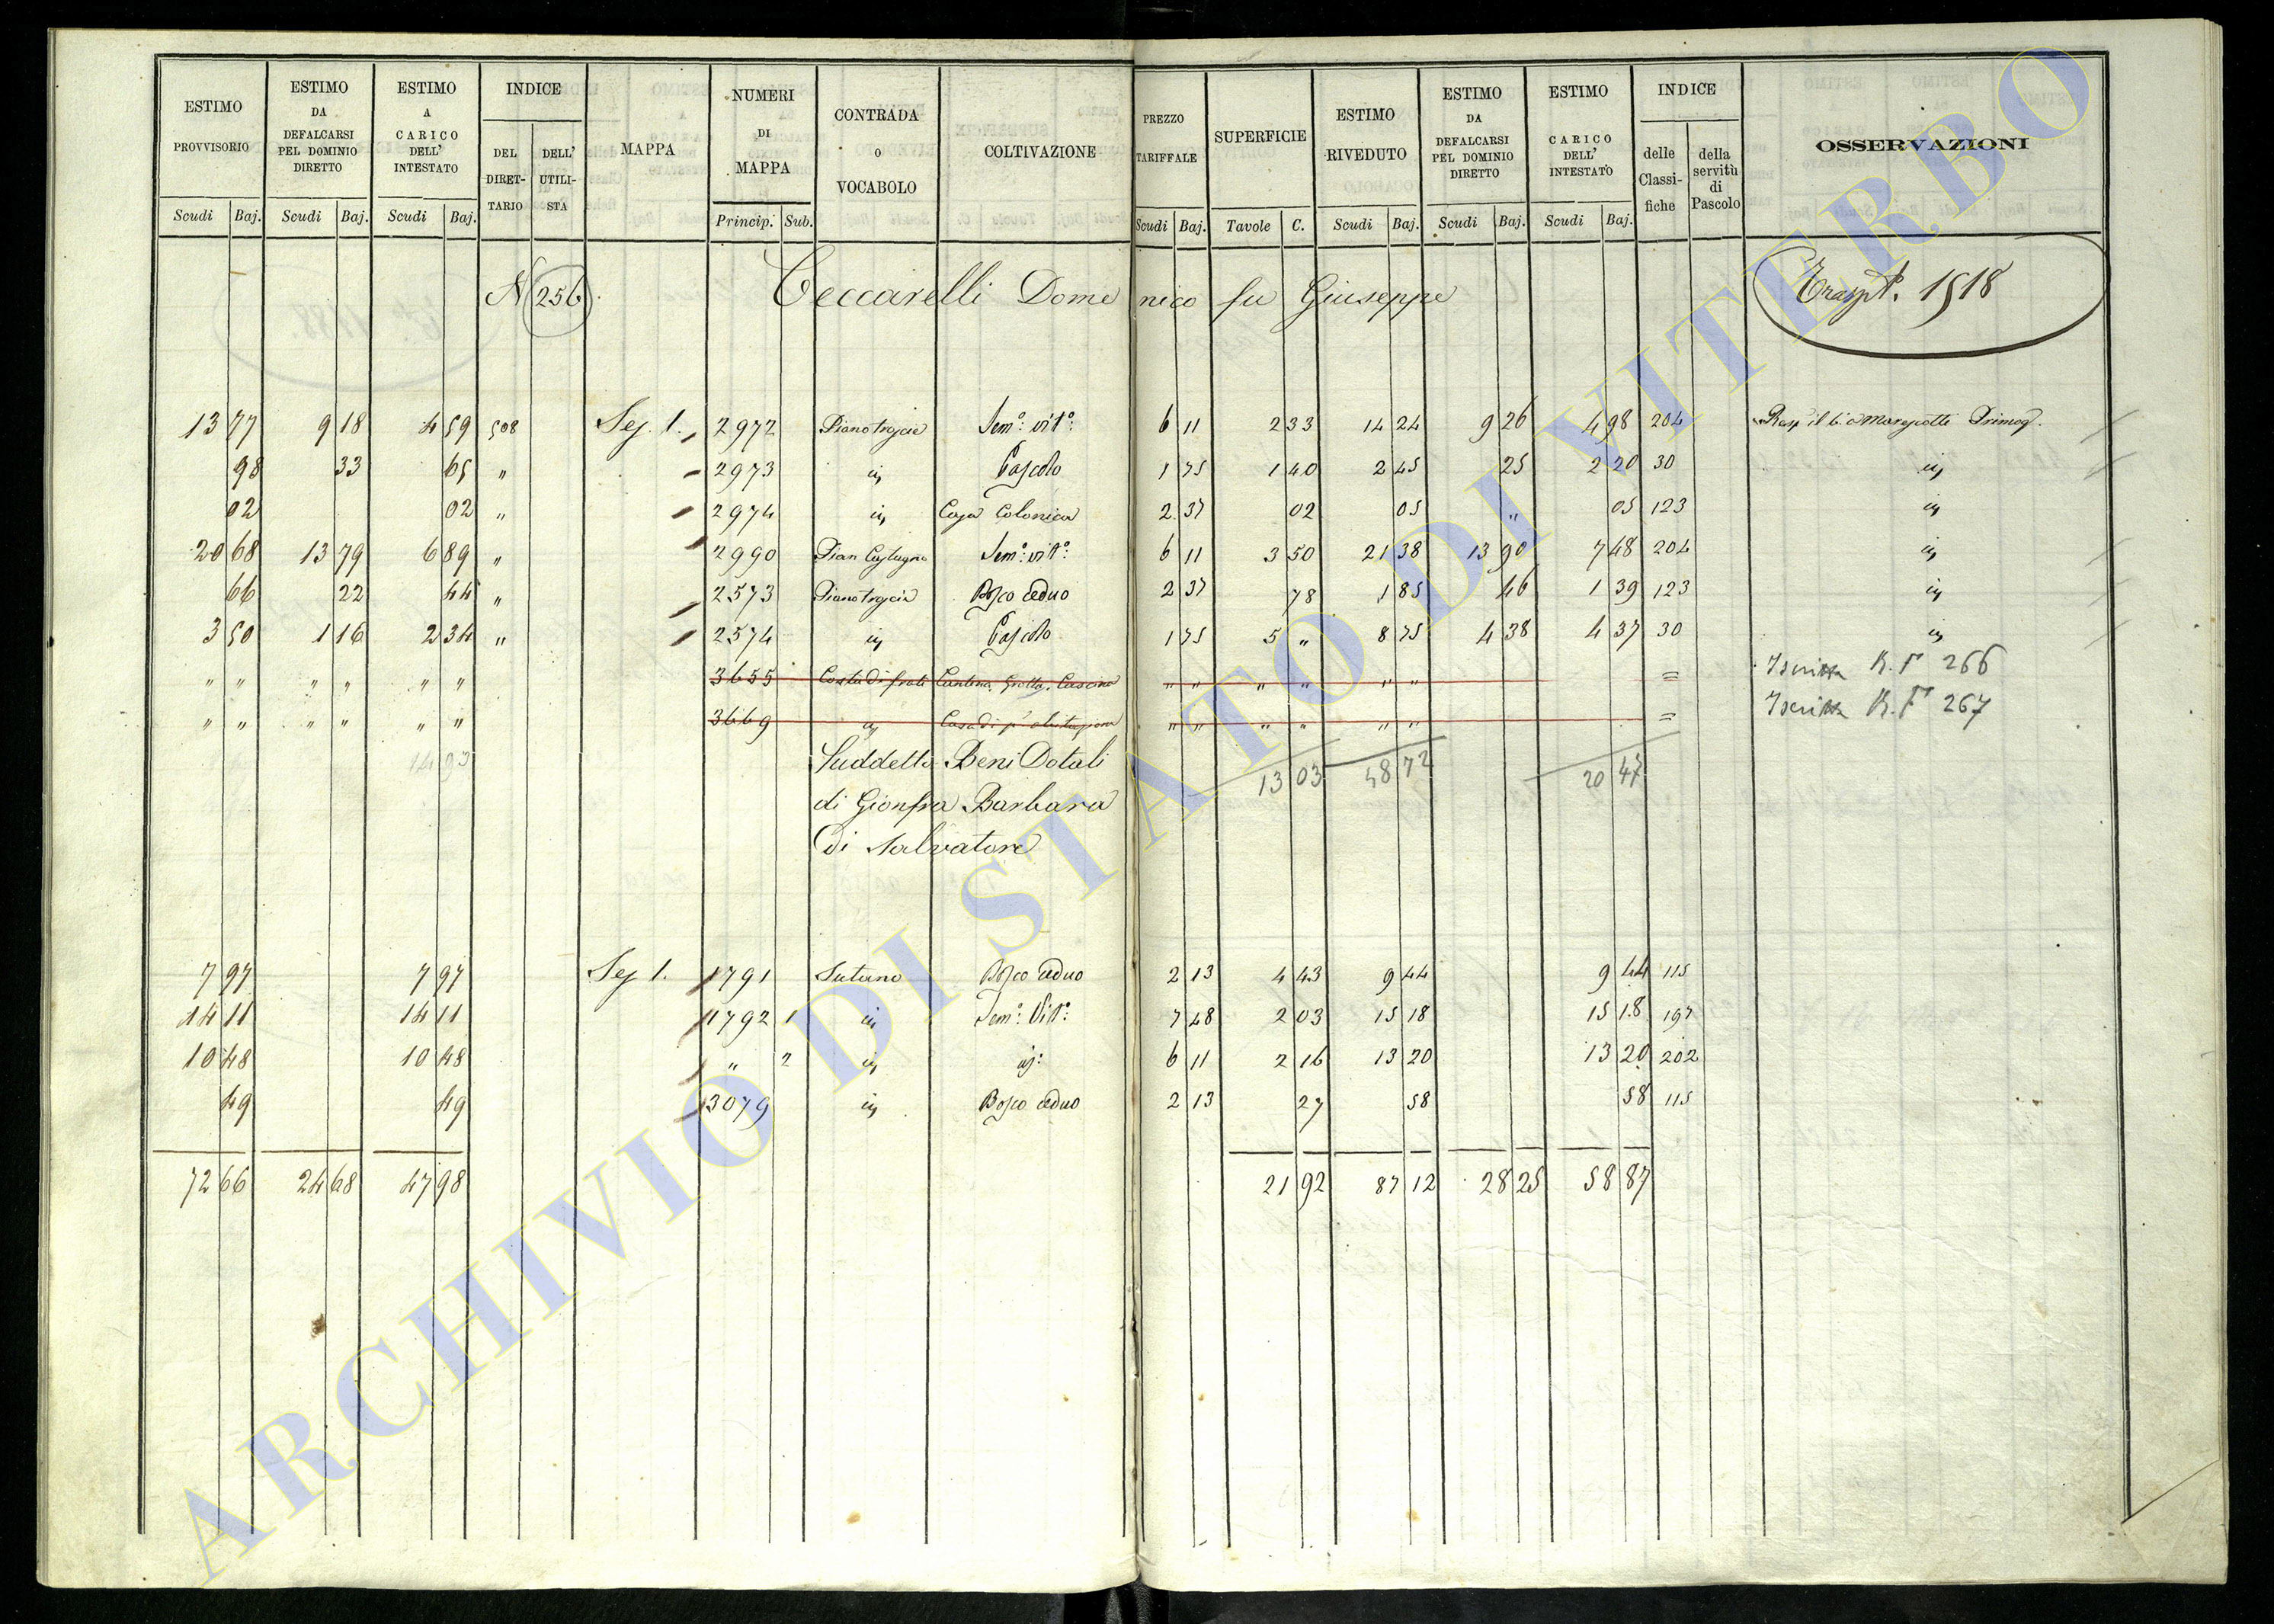 ESTIMO PROVVISORIO | ESTIMO DA DEFALCARSI PEL DOMINIO DIRETTO | ESTIMO A CARICO DELL' INTESTATO | INDICE | MAPPA | NUMERI DI MAPPA | CONTRADA O VOCABOLO | COLTIVAZIONE | PREZZO TARIFFALE | SUPERFICIE | ESTIMO RIVEDUTO | ESTIMO DA DEFALCARSI PEL DOMINIO DIRETTO | ESTIMO A CARICO DELL' INTESTATO | INDICE | OSSERVAZIONI
DEL DIRETTARIO | DELL' UTILISTA | delle Classifiche | della servitù di Pascolo
Scudi | Baj. | Scudi | Baj. | Scudi | Baj. | Princip. | Sub. | Scudi | Baj. | Tavole | C. | Scudi | Baj. | Scudi | Baj. | Scudi | Baj.
N 256 Ceccarelli Domenico fu Giuseppe Traspt. 1518
13 77 | 9 18 | 4 59 | 508 | Sez. 1. | 2972 | Pianotrojcia | Sem.º vit.º | 6 11 | 2 33 | 14 24 | 9 26 | 4 98 | 204 | Risp il
98 | 33 | 65 | " | 2973 | ij | Pascolo | 1 75 | 1 40 | 2 45 | 25 | 2 20 | 30 | ij
02 | 02 | " | 2974 | ij | Casa Colonica | 2 37 | 02 | 05 | " | 05 | 123 | ij
20 68 | 13 79 | 6 89 | " | 2990 | Pian Castagno | Sem.º vit.º | 6 11 | 3 50 | 21 38 | 13 90 | 7 48 | 204 | ij
66 | 22 | 44 | " | 2573 | Pianotrojcia | Bosco ceduo | 2 37 | 78 | 1 85 | 46 | 1 39 | 123 | ij
3 50 | 1 16 | 2 34 | " | 2574 | ij | Pascolo | 1 75 | 5 " | 8 75 | 4 38 | 4 37 | 30 | ij
" " | " " | " " | 3655 | Costa di frati | Cantina, Grotta, Cascina | " " | " " | " " | = | Iscritta R. F 266
" " | " " | " " | 3669 | ij | Casa di p' abitazione | " " | " " | " " | = | Iscritta R. F 267
14 93 | Suddetto Beni Dotali | 13 03 | 48 72 | 20 47
di Gionfra Barbara
di Salvatore
7 97 | 7 97 | Sez 1. | 1791 | Sutano | Bosco ceduo | 2 13 | 4 43 | 9 44 | 9 44 | 115
14 11 | 14 11 | 1792 1 | ij | Sem.º Vit.º | 7 48 | 2 03 | 15 18 | 15 18 | 197
10 48 | 10 48 | " 2 | ij | ij: | 6 11 | 2 16 | 13 20 | 13 20 | 202
49 | 49 | 3079 | ij | Bosco ceduo | 2 13 | 27 | 58 | 58 | 115
72 66 | 24 68 | 47 98 | 21 92 | 87 12 | 28 25 | 58 87
ARCHIVIO DI STATO DI VITERBO